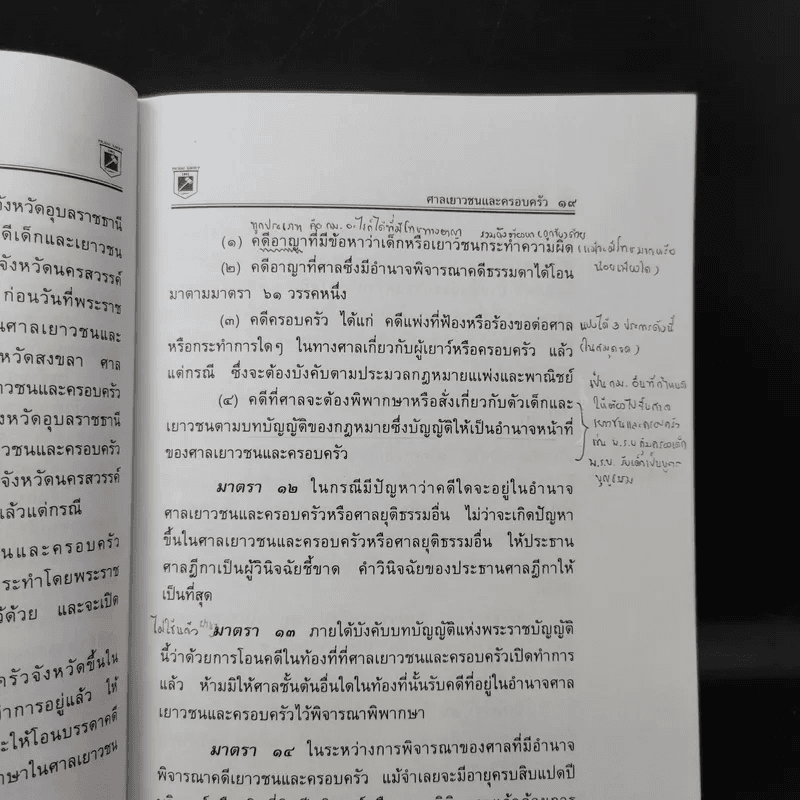 จังหวัดอุบลราชธานี
ดีเด็กและเยาวชน
จังหวัดนครสวรรค์
ก่อนวันที่พระราช
นศาลเยาวชนและ
หวัดสงขลา ศาล
าวชนและครอบครัว
จังหวัดอุบลราชธานี
วชนและครอบครัว
จังหวัดนครสวรรค์
แล้วแต่กรณี
นและครอบครัว
ระทำโดยพระราช
ว้ด้วย และจะเปิด
ครัวจังหวัดขึ้นใน
ทำการอยู่แล้ว ให้
ะให้โอนบรรดาคดี
าษาในศาลเยาวชน
ศาลเยาวชนและครอบครัว ๑๙
ทุกประเภท คือ กม. อะไรก็ได้ที่มีโทษทางอาญา
(๑) คดีอาญาที่มีข้อหาว่าเด็กหรือเยาวชนกระทำความผิด
(๒) คดีอาญาที่ศาลซึ่งมีอำนาจพิจารณาคดีธรรมดาได้โอน
มาตามมาตรา ๖๑ วรรคหนึ่ง
(๓) คดีครอบครัว ได้แก่ คดีแพ่งที่ฟ้องหรือร้องขอต่อศาล
แบ่งได้ 3 ประการดังนี้
หรือกระทำการใดๆ ในทางศาลเกี่ยวกับผู้เยาว์หรือครอบครัว แล้ว
(ในสมุดจด)
แต่กรณี ซึ่งจะต้องบังคับตามประมวลกฎหมายแพ่งและพาณิชย์
เป็น กม. อื่นที่กำหนด
(๔) คดีที่ศาลจะต้องพิพากษาหรือสั่งเกี่ยวกับตัวเด็กและ
เยาวชนตามบทบัญญัติของกฎหมายซึ่งบัญญัติให้เป็นอำนาจหน้าที่
เยาวชนและครอบครัว
ของศาลเยาวชนและครอบครัว
เช่น พ.ร.บ. คุ้มครองเด็ก
พ.ร.บ. รับเด็กเป็นบุตร
บุญธรรม
มาตรา ๑๒ ในกรณีมีปัญหาว่าคดีใดจะอยู่ในอำนาจ
ศาลเยาวชนและครอบครัวหรือศาลยุติธรรมอื่น ไม่ว่าจะเกิดปัญหา
ขึ้นในศาลเยาวชนและครอบครัวหรือศาลยุติธรรมอื่น ให้ประธาน
ศาลฎีกาเป็นผู้วินิจฉัยชี้ขาด คำวินิจฉัยของประธานศาลฎีกาให้
เป็นที่สุด
ไม่ใช้แล้ว
มาตรา ๑๓ ภายใต้บังคับบทบัญญัติแห่งพระราชบัญญัติ
นี้ว่าด้วยการโอนคดีในท้องที่ที่ศาลเยาวชนและครอบครัวเปิดทำการ
แล้ว ห้ามมิให้ศาลชั้นต้นอื่นใดในท้องที่นั้นรับคดีที่อยู่ในอำนาจศาล
เยาวชนและครอบครัวไว้พิจารณาพิพากษา
มาตรา ๑๔ ในระหว่างการพิจารณาของศาลที่มีอำนาจ
พิจารณาคดีเยาวชนและครอบครัว แม้จำเลยจะมีอายุครบสิบแปดปี